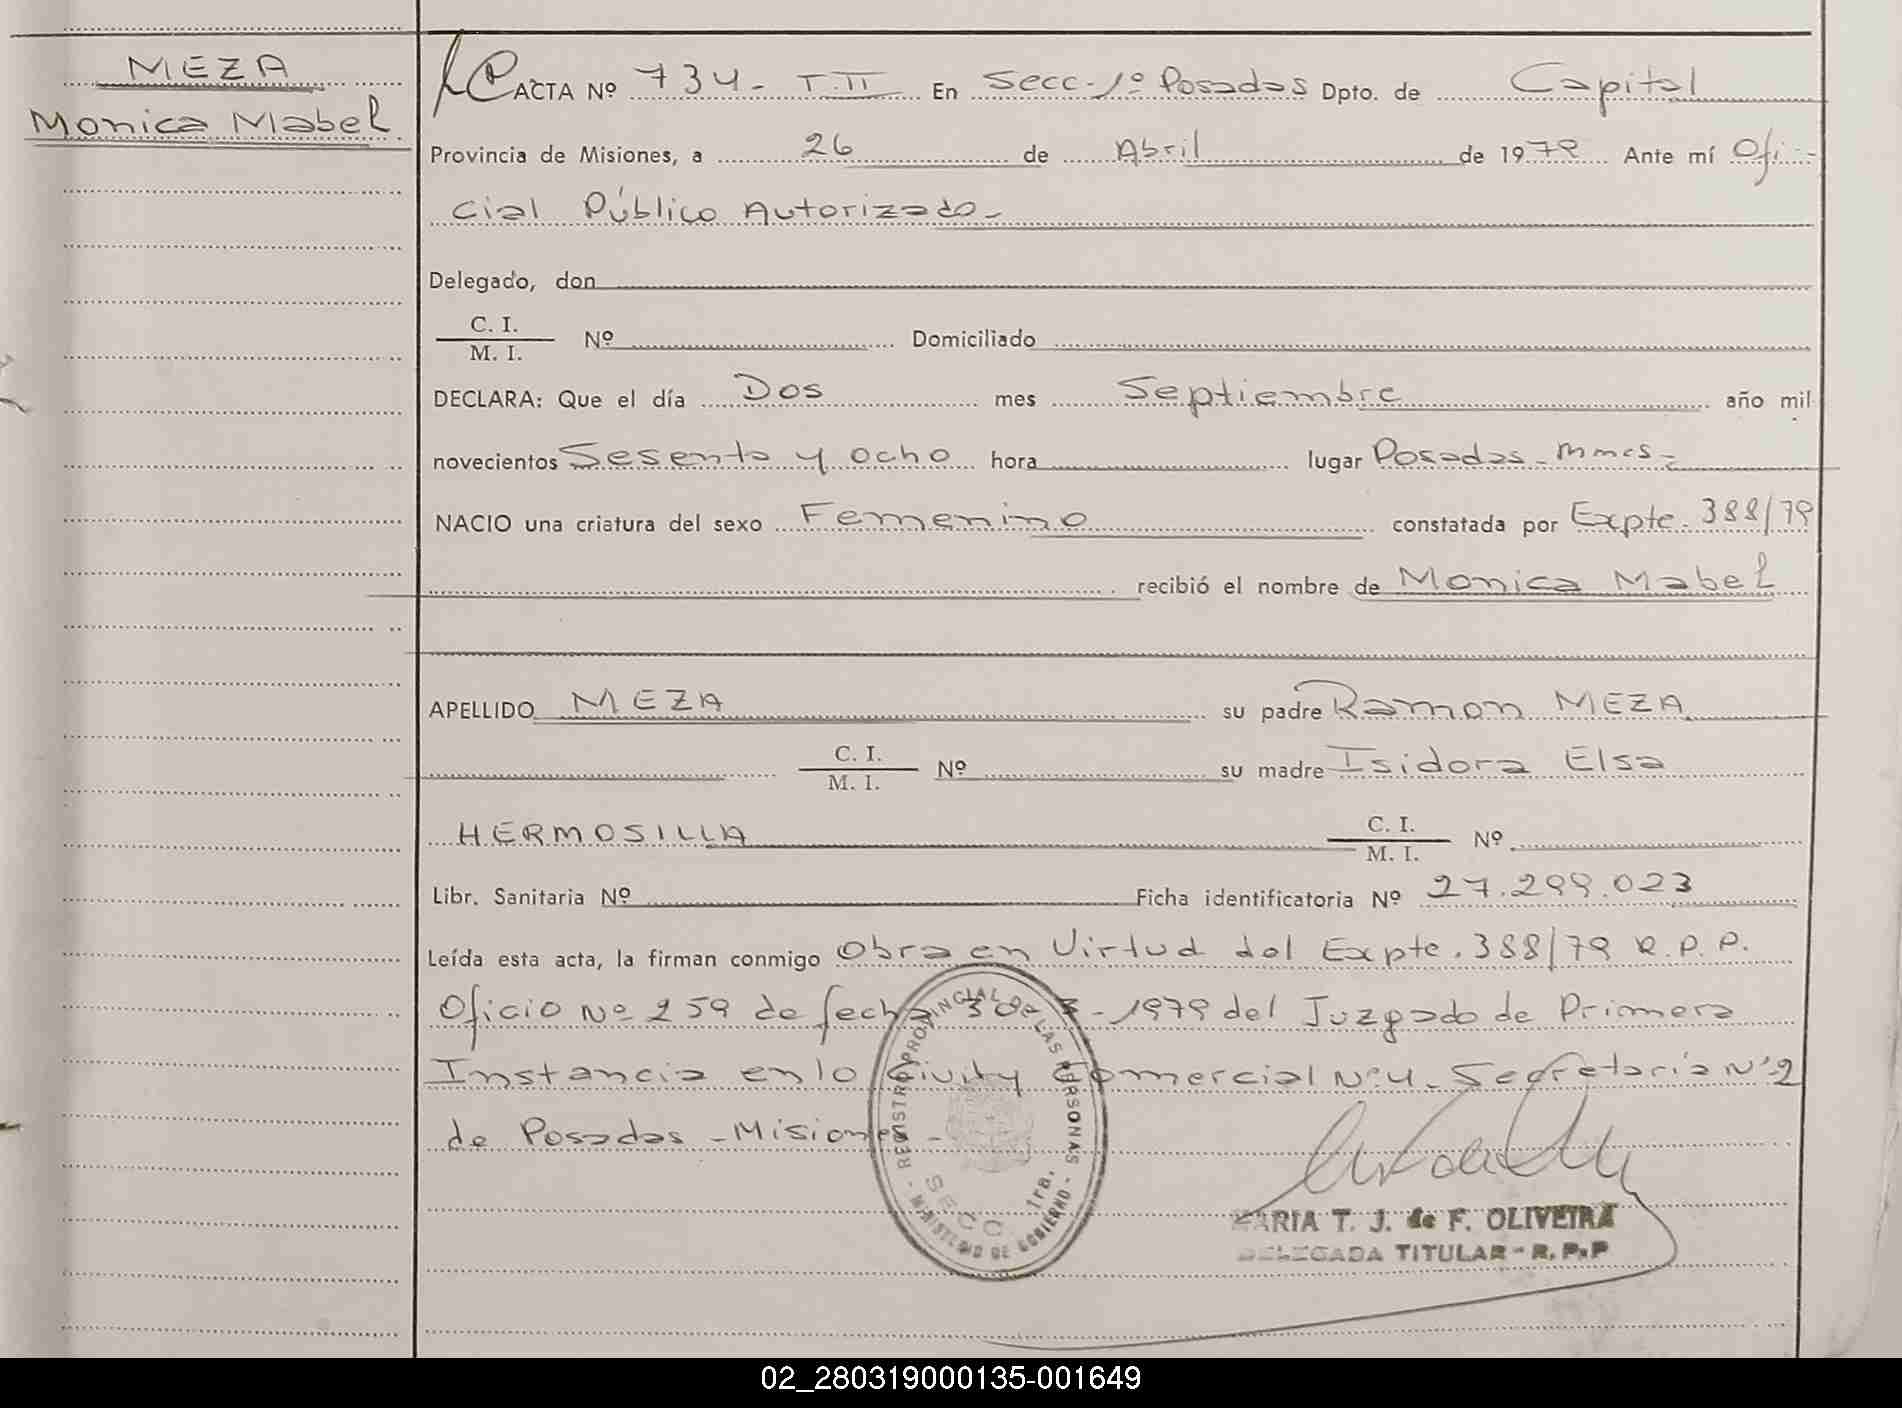 MEZA
Monica Mabel
ACTA Nº 734- T.II En Secc-1º Posadas Dpto. de Capital
Provincia de Misiones, a 26 de Abril de 1979 Ante mí Ofi-
cial Público Autorizado-
Delegado, don
C. I.
M. I.
Nº Domiciliado
DECLARA: Que el día Dos mes Septiembre año mil
novecientos Sesenta y ocho hora lugar Posadas-Mnes-
NACIO una criatura del sexo Femenino constatada por Expte. 388/79
recibió el nombre de Monica Mabel
APELLIDO MEZA su padre Ramon MEZA
C. I.
M. I.
Nº su madre Isidora Elsa
HERMOSILLA
C. I.
M. I.
Nº
Libr. Sanitaria Nº Ficha identificatoria Nº 27.299.023
Leída esta acta, la firman conmigo Obra en Virtud del Expte. 388/79 R.P.P.
Oficio Nº 259 de fecha 30-3-1979 del Juzgado de Primera
Instancia en lo Civil y Comercial Nº 4- Secretaría Nº 2
de Posadas-Misiones-
REGISTRO PROVINCIAL DE LAS PERSONAS
SECC. 1ra.
- MINISTERIO DE GOBIERNO -
MARIA T. J. de F. OLIVEIRA
DELEGADA TITULAR - R. P. P
02_280319000135-001649